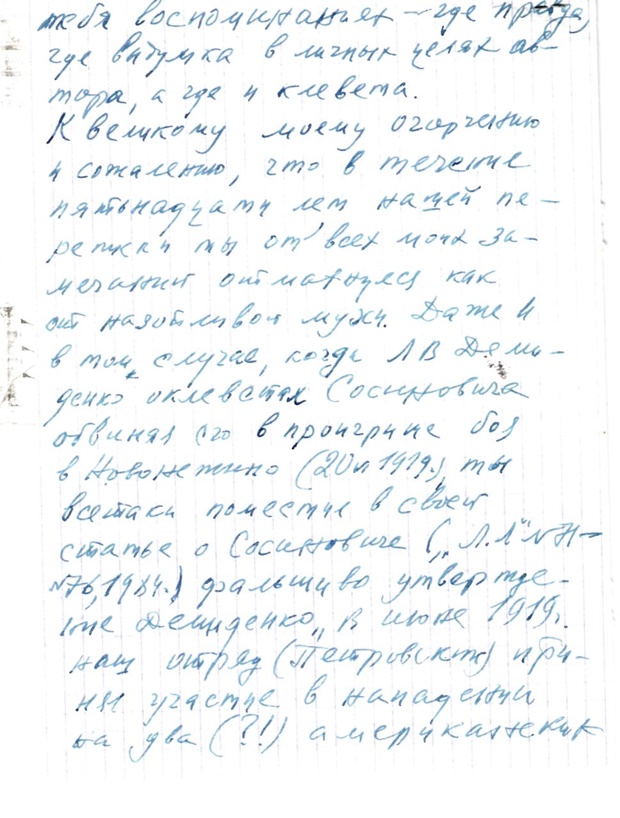 тебя воспоминаниях – где правда,
где выдумка в личных целях ав-
тора, а где и клевета.
К великому моему огорчению
и сожалению, что в течение
пятьнадцати лет нашей пе-
реписки ты от всех моих за-
мечаний отмахнулся как
от назойливой мухи. Даже и
в том, случае, когда Л В Деми-
денко оклеветал Сосиновича
обвиняя его в проигрыше боя
в Новонежино (20 1919г.), ты
всетаки поместил в своей
статье о Сосиновиче („Л.Л"
№76, 1984.) фальшиво утвержде-
ние Демиденко „В июне 1919г.
наш отряд (Петровский) при-
нял участие в нападении
на два (?!) американских